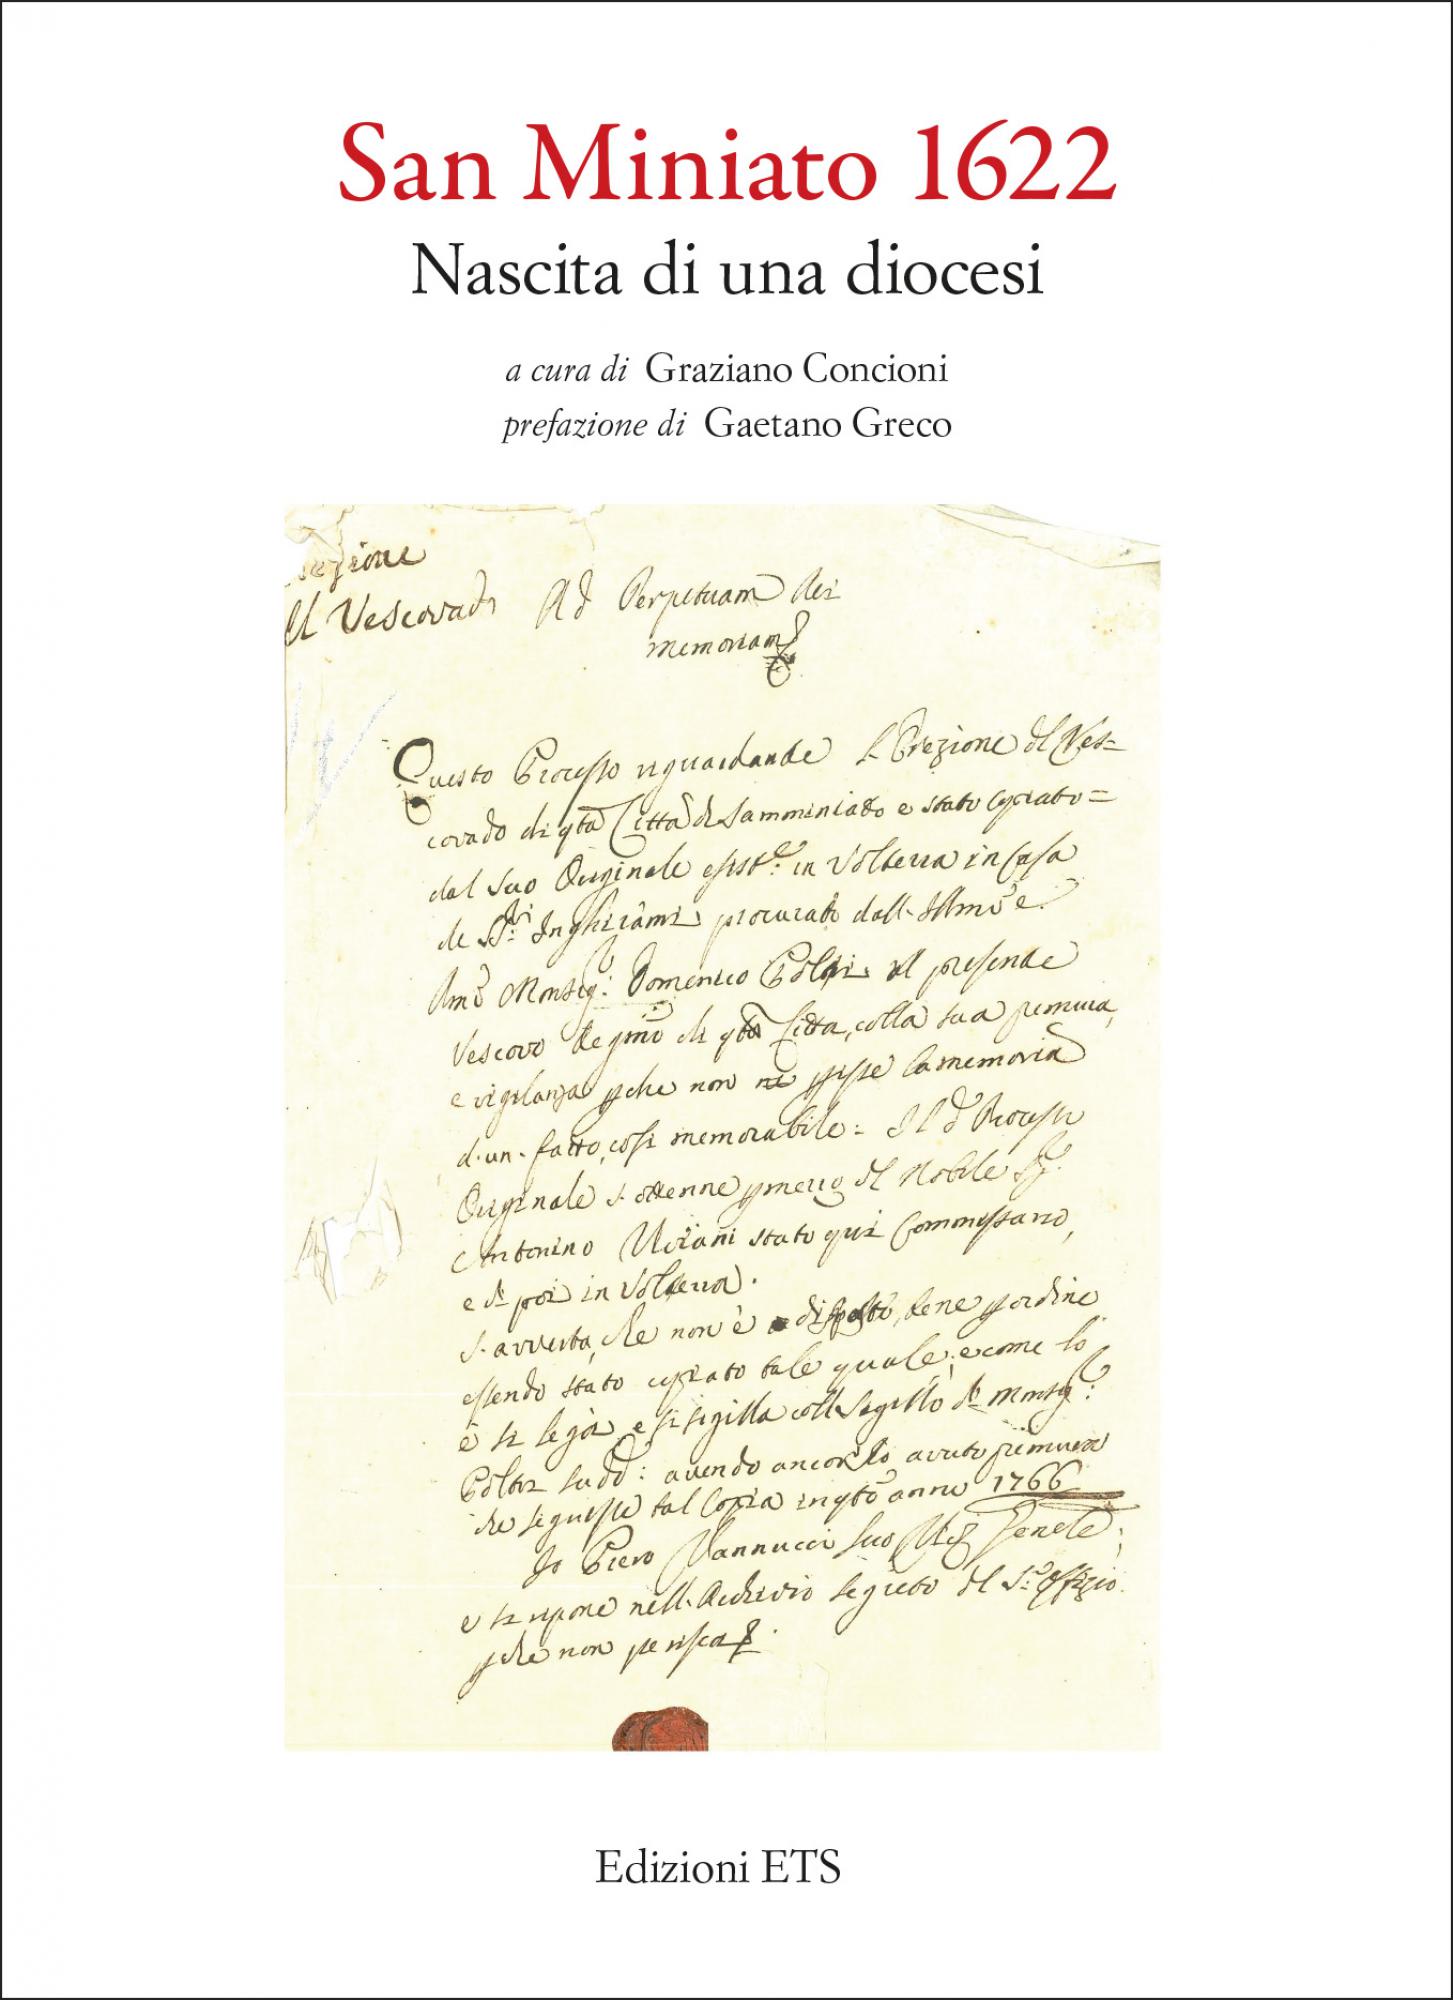 San Miniato 1622
Nascita di una diocesi
a cura di Graziano Concioni
prefazione di Gaetano Greco
ezione
el Vescovado Ad Perpetuam rei
memoriam
Questo Processo riguardante l'Erezione del Ves=
covado di qta Città di Samminiato e stato copiato=
dal suo Originale esiste: in Volterra in Casa
de SSri: Inghirami procurato dall. Illmo e
Rmo Monsig: Domenico Poltri al presente
Vescovo degmo di qta Citta, colla sua premura,
e vigilanza pche non ne la memoria
d. un. fatto, cosi memorabile= Il do Processo
Originale s. ottenne p mezzo del Nobile Sr.
Antonino Viviani stato qui Commissario,
e di poi in Volterra.
s. avverta, che non è disposto bene p ordine
essendo stato copiato tale quale, e come lo
è si lega e si sigilla coll Sigillo di Monsig:
Poltri sudd: avendo ancor lo avuto premura
che seguisse tal Copia in qto anno 1766
Io Piero Vannucci suo Genele;
e si ripone nell. Archivio segreto del St: Offizio
pche non perisca
Edizioni ETS